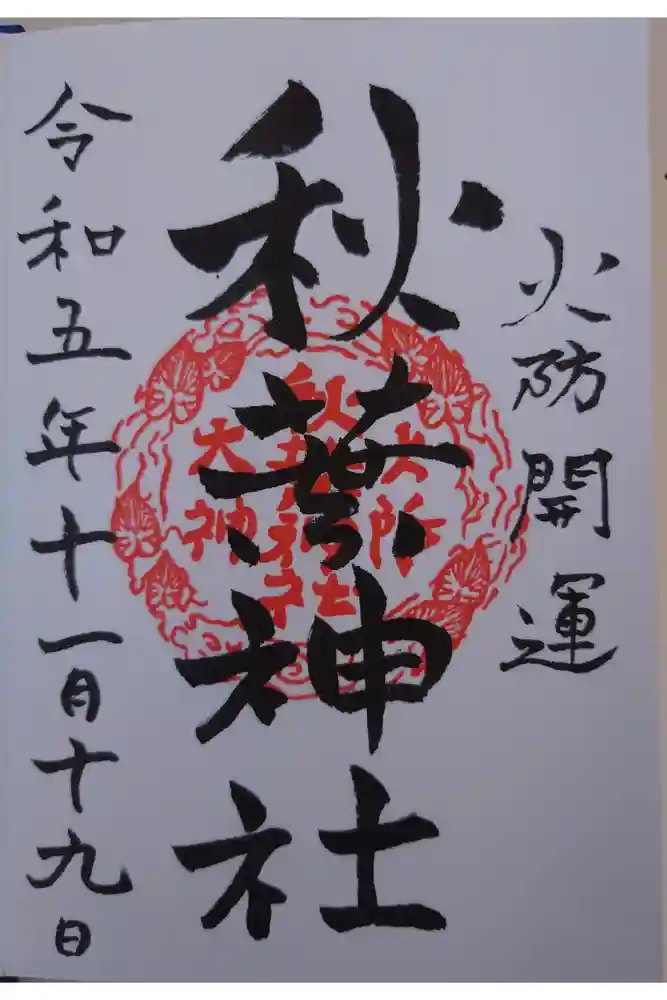 火防開運
秋葉神社
火防
秋葉神社
大神
令和五年十一月十九日